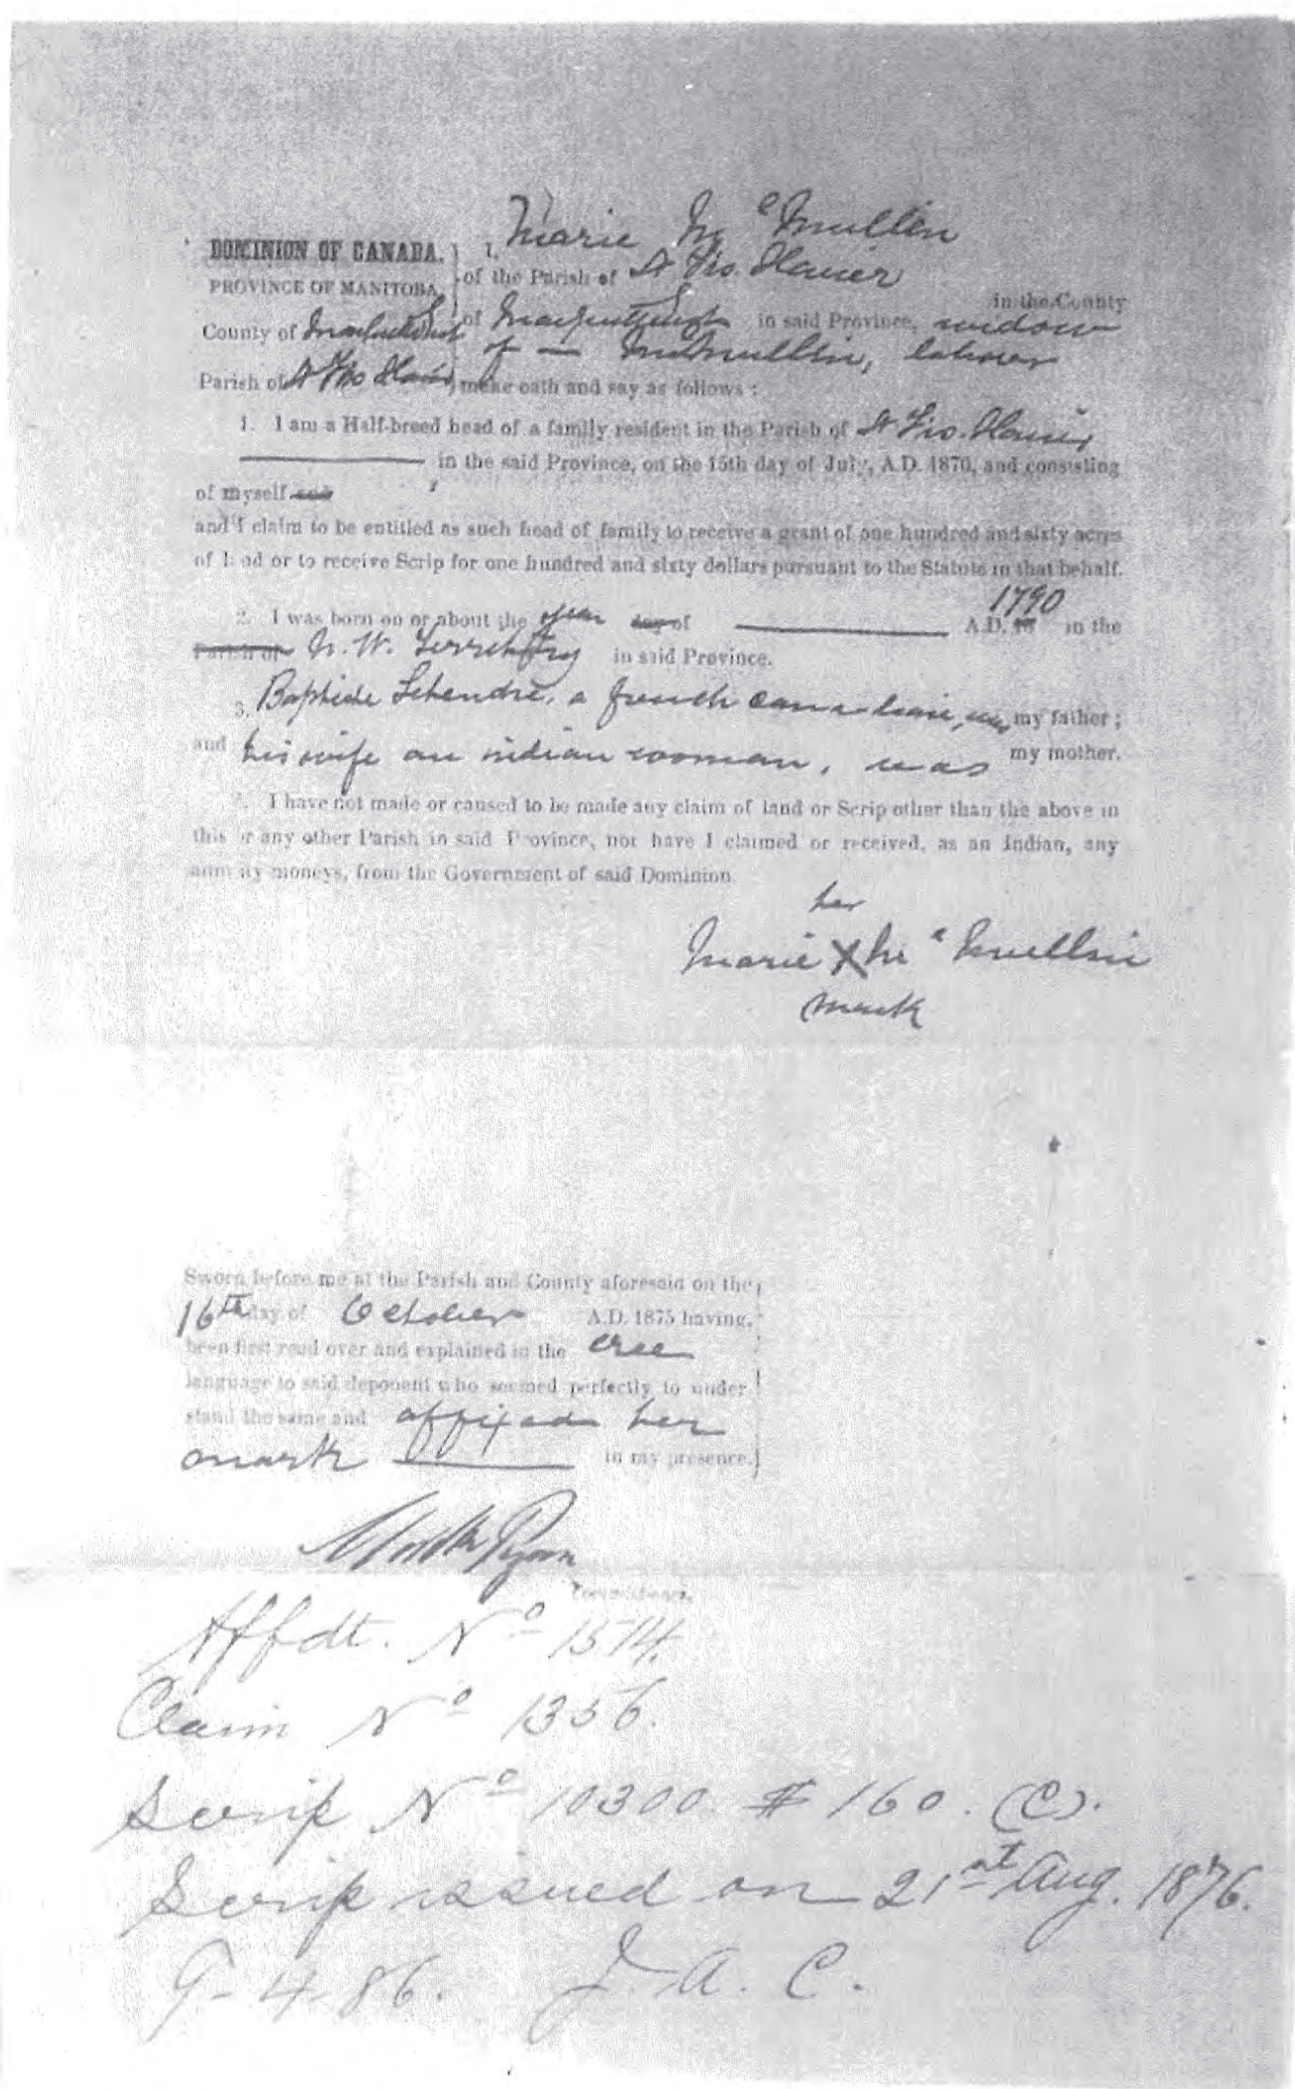 Marie Mc Mullen
DOMINION OF CANADA. } I,
of the Parish of St Frs. Xavier
PROVINCE OF MANITOBA, in the County
County of Marquette of Marquette in said Province, widow
of — McMullin, laborer
Parish of St Frs Xavier make oath and say as follows :
1. I am a Half-breed head of a family resident in the Parish of St Frs. Xavier
in the said Province, on the 15th day of July, A.D. 1870, and consisting
of myself and
and I claim to be entitled as such head of family to receive a grant of one hundred and sixty acres
of land or to receive Scrip for one hundred and sixty dollars pursuant to the Statute in that behalf.
1790
2. I was born on or about the year day of A.D. 18 in the
Parish of N. W. Territory in said Province.
3. Baptiste Letendre, a french canadian, was my father ;
and his wife an indian woman, was my mother.
I have not made or caused to be made any claim of land or Scrip other than the above in
this or any other Parish in said Province, nor have I claimed or received, as an Indian, any
annuity moneys, from the Government of said Dominion.
her
Marie X Mc Mullin
mark
Sworn before me at the Parish and County aforesaid on the
16th day of October A.D. 1875 having,
been first read over and explained in the cree
language to said deponent who seemed perfectly to under
stand the same and affixed her
mark in my presence.
Ryan
Commissioner.
Affdt. No 1574.
Claim No 1356.
Scrip No 10300. $160. (C).
Scrip issued on 21st Aug. 1876.
9-4-86. J. A. C.